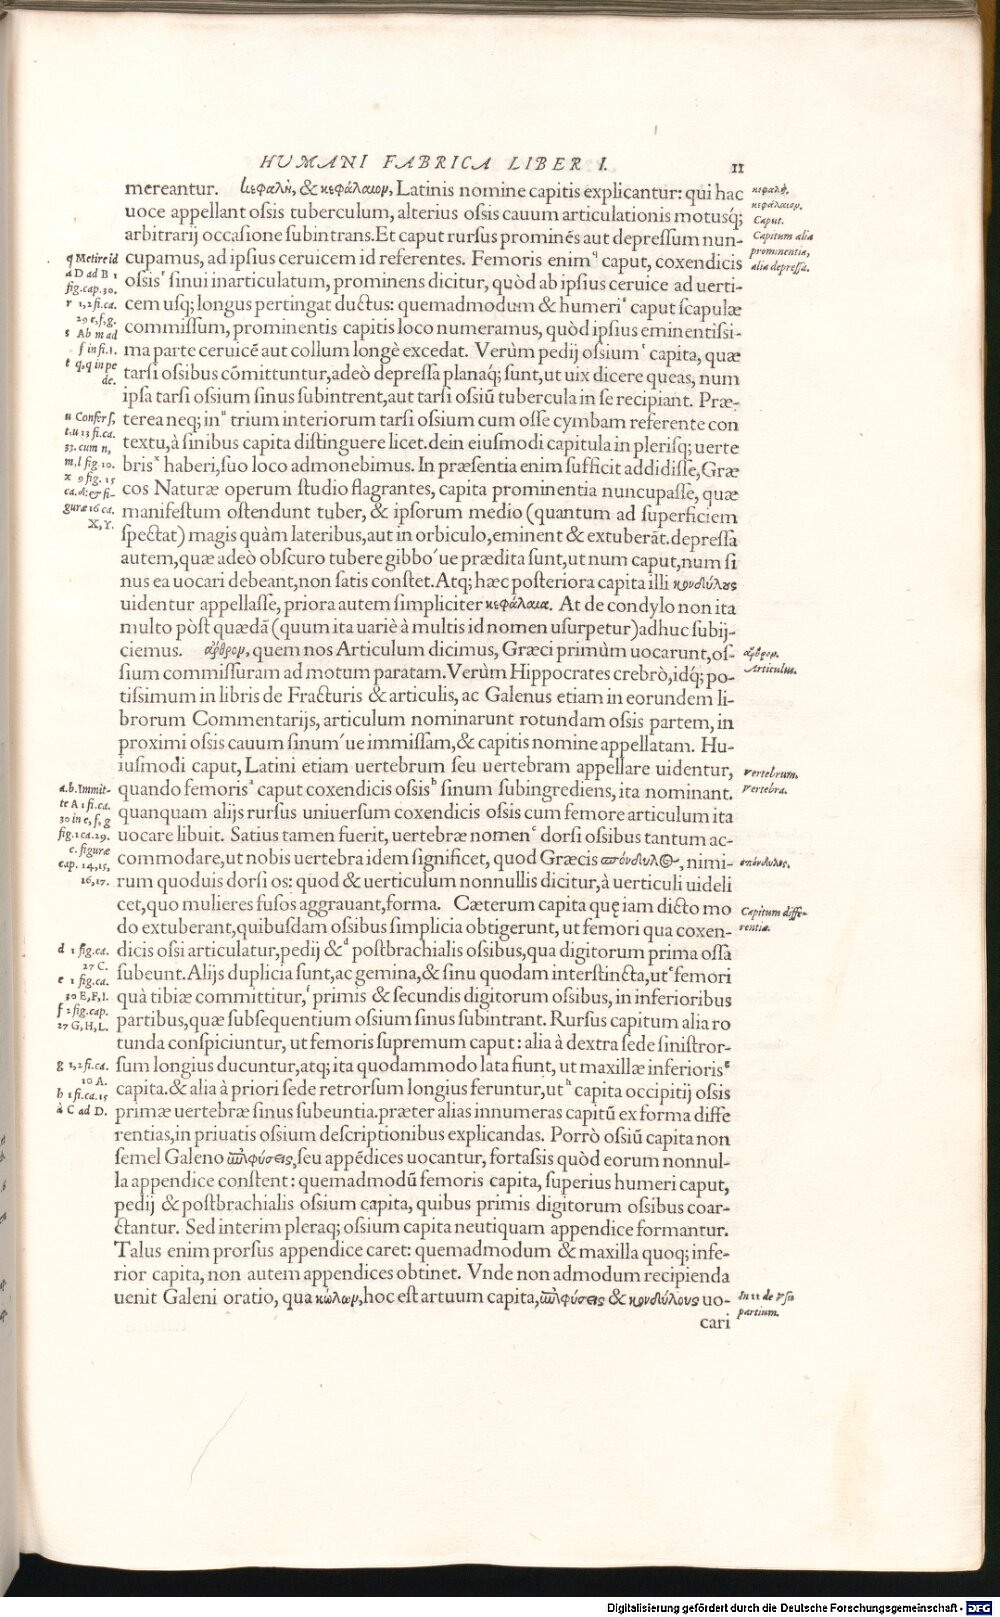 HVMANI FABRICA LIBER I. 11
mereantur. κεφαλὴν, & κεφάλαιον, Latinis nomine capitis explicantur: qui hac
uoce appellant oſsis tuberculum, alterius oſsis cauum articulationis motusq́;
arbitrarij occaſione ſubintrans. Et caput rurſus prominẽs aut depreſſum nun-
cupamus, ad ipſius ceruicem id referentes. Femoris enim q caput, coxendicis
oſsis r ſinui inarticulatum, prominens dicitur, quòd ab ipſius ceruice ad uerti-
cem uſq; longus pertingat ductus: quemadmodum & humeri s caput ſcapulæ
commiſſum, prominentis capitis loco numeramus, quòd ipſius eminentiſsi-
ma parte ceruicẽ aut collum longè excedat. Verùm pedij oſsium t capita, quæ
tarſi oſsibus cõmittuntur, adeò depreſſa planaq́; ſunt, ut uix dicere queas, num
ipſa tarſi oſsium ſinus ſubintrent, aut tarſi oſsiũ tubercula in ſe recipiant. Præ-
terea neq; in u trium interiorum tarſi oſsium cum oſſe cymbam referente con
textu, à ſinibus capita diſtinguere licet. dein eiuſmodi capitula in pleriſq; uerte
bris x haberi, ſuo loco admonebimus. In præſentia enim ſufficit addidiſſe, Græ
cos Naturæ operum ſtudio flagrantes, capita prominentia nuncupaſſe, quæ
manifeſtum oſtendunt tuber, & ipſorum medio (quantum ad ſuperficiem
ſpectat) magis quàm lateribus, aut in orbiculo, eminent & extuberãt. depreſſa
autem, quæ adeò obſcuro tubere gibbo´ue prædita ſunt, ut num caput, num ſi
nus ea uocari debeant, non ſatis conſtet. Atq; hæc poſteriora capita illi κονδύλους
uidentur appellaſſe, priora autem ſimpliciter κεφάλαια. At de condylo non ita
multo pòſt quædã (quum ita uariè à multis id nomen uſurpetur) adhuc ſubij-
ciemus. ἄρθρον, quem nos Articulum dicimus, Græci primùm uocarunt, oſ-
ſium commiſſuram ad motum paratam. Verùm Hippocrates crebrò, idq́; po-
tiſsimum in libris de Fracturis & articulis, ac Galenus etiam in eorundem li-
brorum Commentarijs, articulum nominarunt rotundam oſsis partem, in
proximi oſsis cauum ſinum´ue immiſſam, & capitis nomine appellatam. Hu-
iuſmodi caput, Latini etiam uertebrum ſeu uertebram appellare uidentur,
quando femoris a caput coxendicis oſsis b ſinum ſubingrediens, ita nominant.
quanquam alijs rurſus uniuerſum coxendicis oſsis cum femore articulum ita
uocare libuit. Satius tamen fuerit, uertebræ nomen c dorſi oſsibus tantum ac-
commodare, ut nobis uertebra idem ſignificet, quod Græcis σπόνδυλος, nimi-
rum quoduis dorſi os: quod & uerticulum nonnullis dicitur, à uerticuli uideli
cet, quo mulieres fuſos aggrauant, forma. Cæterum capita quę iam dicto mo
do extuberant, quibuſdam oſsibus ſimplicia obtigerunt, ut femori qua coxen-
dicis oſsi articulatur, pedij & d poſtbrachialis oſsibus, qua digitorum prima oſſa
ſubeunt. Alijs duplicia ſunt, ac gemina, & ſinu quodam interſtincta, ut e femori
quà tibiæ committitur, f primis & ſecundis digitorum oſsibus, in inferioribus
partibus, quæ ſubſequentium oſsium ſinus ſubintrant. Rurſus capitum alia ro
tunda conſpiciuntur, ut femoris ſupremum caput: alia à dextra ſede ſiniſtror-
ſum longius ducuntur, atq; ita quodammodo lata fiunt, ut maxillæ inferioris g
capita. & alia à priori ſede retrorſum longius feruntur, ut h capita occipitij oſsis
primæ uertebræ ſinus ſubeuntia. præter alias innumeras capitũ ex forma diffe
rentias, in priuatis oſsium deſcriptionibus explicandas. Porrò oſsiũ capita non
ſemel Galeno ἐπιφύσεις, ſeu appẽdices uocantur, fortaſsis quòd eorum nonnul-
la appendice conſtent: quemadmodũ femoris capita, ſuperius humeri caput,
pedij & poſtbrachialis oſsium capita, quibus primis digitorum oſsibus coar-
ctantur. Sed interim pleraq; oſsium capita neutiquam appendice formantur.
Talus enim prorſus appendice caret: quemadmodum & maxilla quoq; infe-
rior capita, non autem appendices obtinet. Vnde non admodum recipienda
uenit Galeni oratio, qua κώλων, hoc eſt artuum capita, ἐπιφύσεις & κονδύλους uo-
cari
q Metire id
a D ad B 1
fig. cap. 30.
r 1, 2 fi. ca.
29 e, f, g.
s Ab m ad
f in fi. 1.
t q, q in pe
de.
u Confer ſ,
t, u 23 fi. ca.
33. cum n,
m, l fig 10.
x 9 fig. 15
ca. d: & fi-
guræ 16 ca.
X, Y.
a. b. Immit-
te A 1 fi. ca.
30 in e, f, g
fig. 1 ca. 29.
c. figuræ
cap. 14, 15,
16, 17.
d 1 fig. ca.
27 C.
e 1 fig. ca.
30 E, F, I.
f 2 fig. cap.
27 G, H, L.
g 1, 2 fi. ca.
10 A.
h 1 fi. ca. 15
à C ad D.
κεφαλή.
κεφάλαιον.
Caput.
Capitum alia
prominentia,
alia depreſſa.
ἄρθρον.
Articulus.
Vertebrum.
Vertebra.
σπόνδυλος.
Capitum diffe-
rentiæ.
In 11 de Vſu
partium.
Digitalisierung gefördert durch die Deutsche Forschungsgemeinschaft - DFG